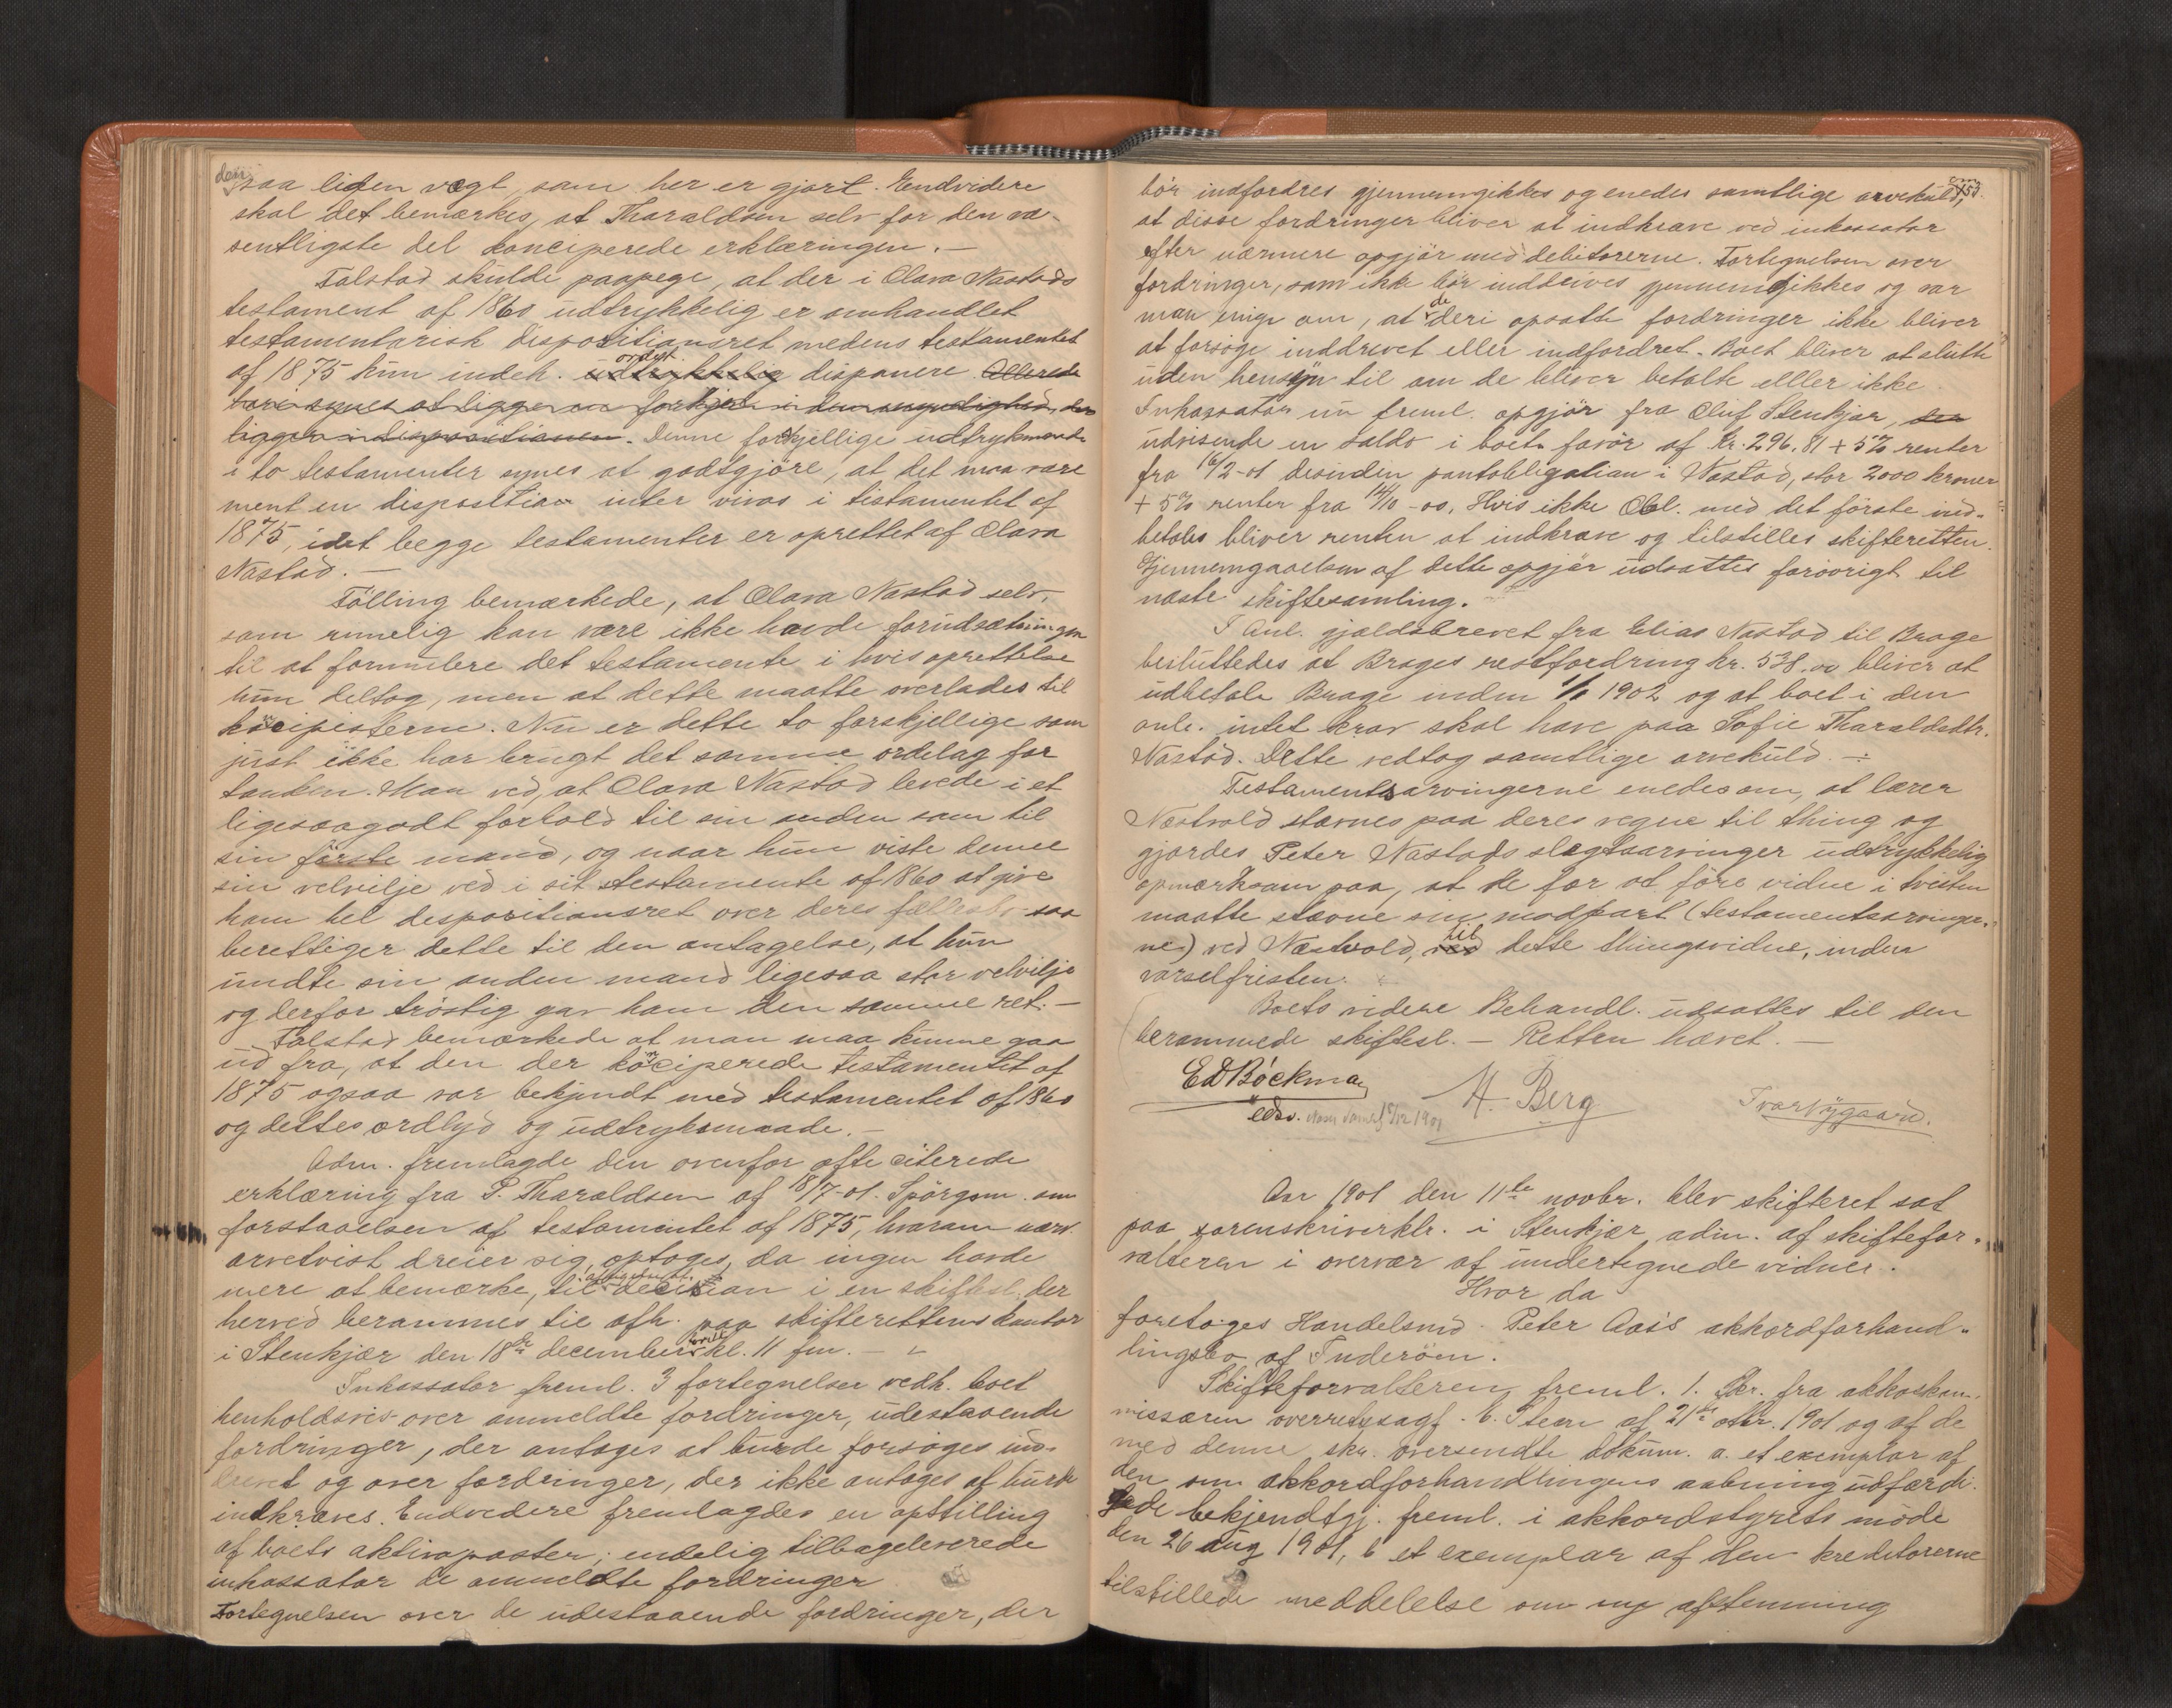 den
saa liden vægt, som her er gjort. Endvidere
skal det bemærkes, at Tharaldsen selv for den væ-
sentligste del konciperede erklæringen. —
Følstad skulde paapege, at der i Clara Næstads
testament af 1860 udtrykkelig er omhandlet
testamentarisk dispositionsret medens testamentet
af 1875 kun indeh. ordet udtrykkelig disponere. Allerede
heri synes at ligge en forskjel i den
ligger i dispositionen. Denne forskjellige udtryksmaade
i to testamenter synes at godtgjöre, at det maa være
ment en disposition inter vivos i testamentet af
1875, idet begge testamenter er oprettet af Clara
Næstad. —
Fölling bemærkede, at Clara Næstad selv,
som rimelig kan være ikke havde forudsætningen
til at formulere det testamente i hvis oprettelse
hun deltog, men at dette maatte overlades til
koncipisterne. Nu er dette to forskjellige som
just ikke har brugt det samme ordelag for
tanken. Man ved, at Clara Næstad levede i et
ligesaagodt forhold til sin anden som til
sin förste mand, og naar hun viste denne
sin velvilje ved i sit testamente af 1860 at give
ham hel dispositionsret over deres fællesbo saa
berettiger dette til den antagelse, at hun
undte sin anden mand ligesaa stor velvilje
og derfor tröstig gav ham den samme ret. —
Følstad bemærkede at man maa kunne gaa
ud fra, at den der konciperede testamentet af
1875 ogsaa var bekjendt med testamentet af 1860
og dettes ordlyd og udtryksmaade. —
Adm. fremlagde den ovenfor ofte citerede
erklæring fra P. Tharaldsen af 18/7-01. Spörgsm. om
forstaaelsen af testamentet af 1875, hvorom nærv.
arvetvist dreier sig, optoges, da ingen havde
mere at bemærke, til decision i en skiftesl. der
herved berammes til afh. paa skifterettens kontor
i Stenkjær den 18de december kl. 11 fm. —
Inkassator freml. 3 fortegnelser vedk. boet
henholdsvis over anmeldte fordringer, udestaaende
fordringer, der antages at burde forsøges ind-
drevet og over fordringer, der ikke antages at burde
indkræves. Endvidere fremlagdes en opstilling
af boets aktivaposter; endelig tilbageleverede
inkassator de anmeldte fordringer
Fortegnelsen over de udestaaende fordringer, der
153.
bör indfordres gjennemgikkes og enedes samtlige arvekuld, om
at disse fordringer bliver at indkræve ved inkassator
efter nærmere opgjör med debitorerne. Fortegnelsen over
fordringer, som ikke bör inddrives gjennemgikkes og var
man enige om, at de deri opsatte fordringer ikke bliver
at forsøge inddrevet eller indfordret. Boet bliver at slutte
uden hensyn til om de bliver betalte elller ikke.
Inkassator freml. opgjör fra Oluf Stenkjær,
udvisende en saldo i boets favör af Kr. 296.81 + 5% renter
fra 16/2-01 desuden pantobligation i Næstad, stor 2000 kroner
+ 5% renter fra 14/10-00. Hvis ikke Obl. med det förste ind-
betales bliver renten at indkræve og tilstilles skifteretten.
Gjennemgaaelsen af dette opgjör udsattes forövrigt til
næste skiftesamling.
I anl. gjældsbrevet fra Elias Næstad til Brage
besluttedes at Brages restfordring kr. 538.00 bliver at
udbetale Brage inden 1/1 1902 og at boet i den
anle. intet krav skal have paa Sofie Tharaldsdtr.
Næstad. Dette vedtog samtlige arvekuld. —
Testamentsarvingerne enedes om, at lærer
Næstvold stævnes paa deres vegne til thing og
gjordes Peter Næstads slægtsarvinger udtrykkelig
opmærksom paa, at de for at före vidne i tvisten
maatte stævne sin modpart (testamentsarvinger-
ne) ved Næstvold, til dette thingsvidne, inden
varselfristen.
Boets videre Behandl. udsattes til den
berammede skiftesl. — Retten hævet. —
Ed Böckman
edsv.
H. Berg
Ivar Nygaard.
Aar 1901 den 11te novbr. blev skifteret sat
paa sorenskriverktr. i Stenkjær, adm. af skiftefor-
valteren i overvær af undertegnede vidner.
Hvor da
foretoges Handelsmd. Peter Aas's akkordforhand-
lingsbo af Inderöen.
Skifteforvalteren freml. 1. Skr. fra akkoskom-
missæren overretssagf. E. Steen af 21de oktr. 1901 og af de
med denne skr. oversendte dokum. a. et exemplar af
den om akkordforhandlingens aabning udfærdi-
gede bekjendtgj. freml. i akkordstyrets möde
den 26 aug 1901, b et exemplar af den kreditorerne
tilstillede meddelelse om ny afstemning